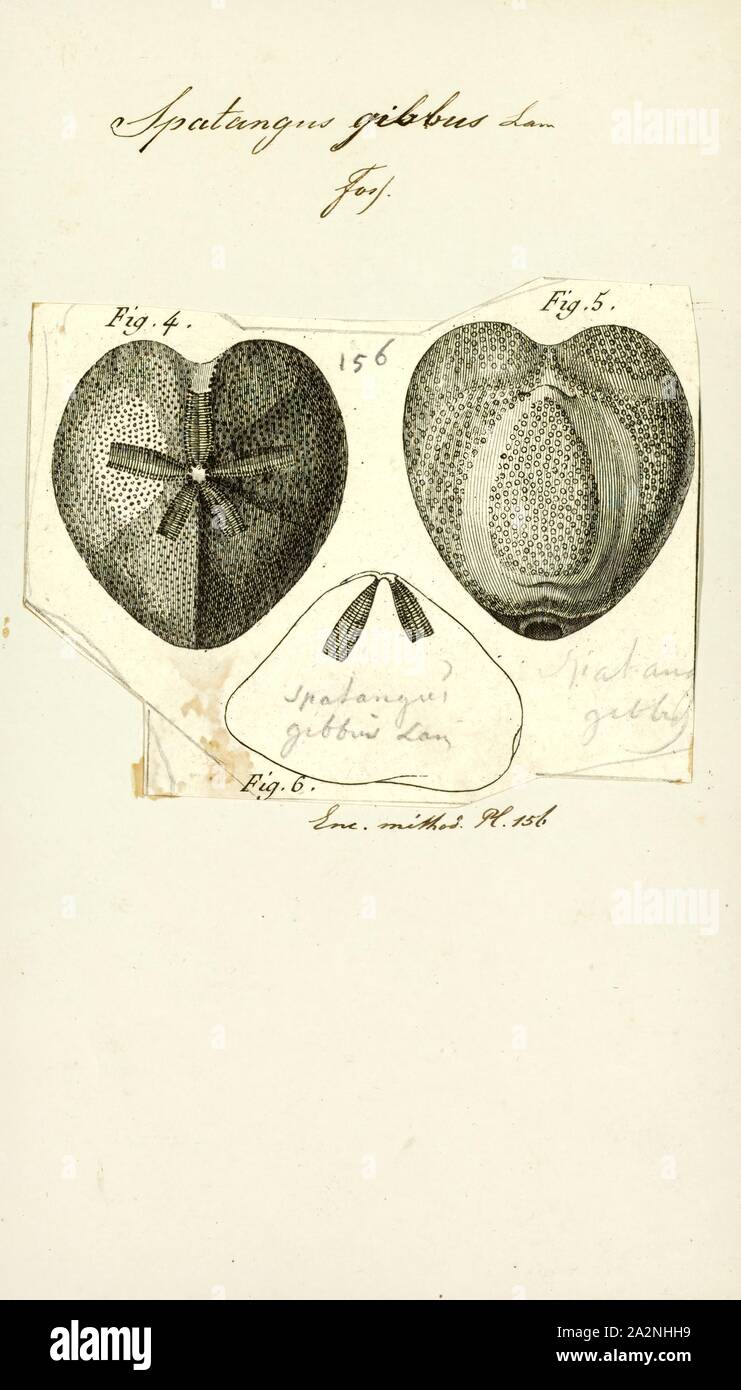 Spatangus gibbus Lam
Fos.
Fig. 4.
Fig. 5.
156
Spatangus
gibbus Lam
Spatang
gibbu
Fig. 6.
Enc. method. Pl. 156
alamy
alamy
Image ID: 2A2NHH9
www.alamy.com